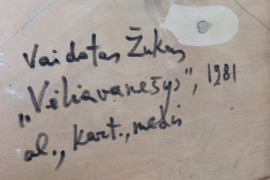 Vaidotas Žukas
„Vėliavanešys”, 1981
al., kart., medis